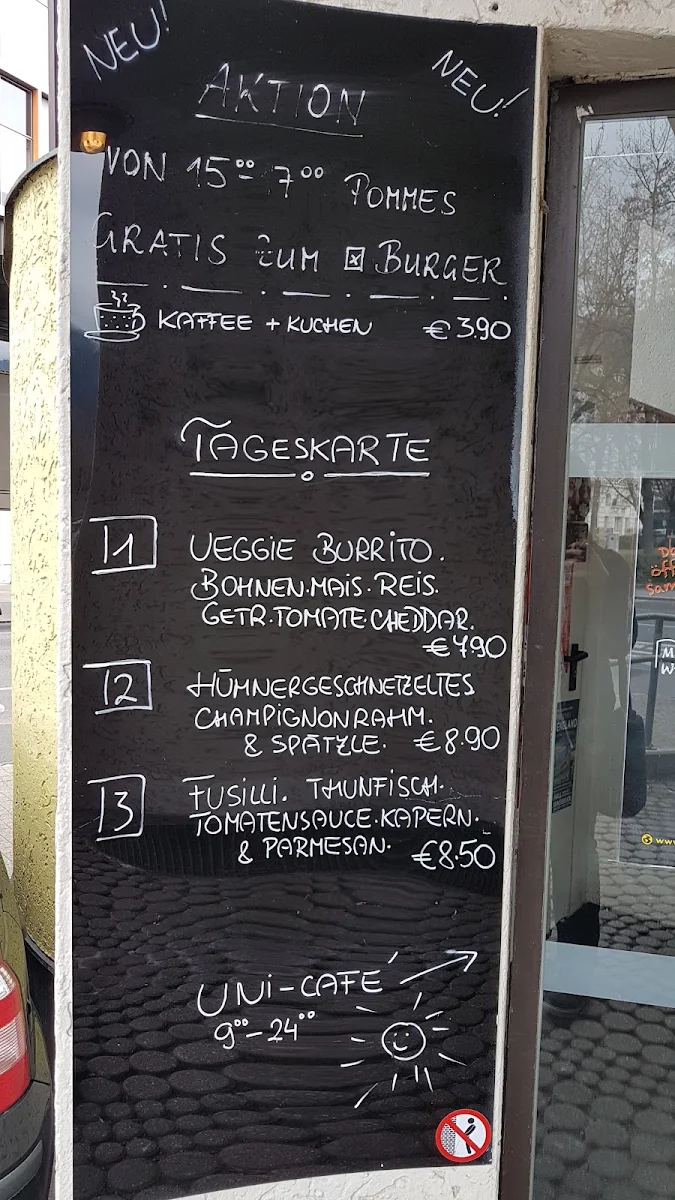 NEU!
NEU!
AKTION
VON 15⁰⁰-7⁰⁰ POMMES
GRATIS ZUM BURGER
KAFFEE + KUCHEN €3.90
TAGESKARTE
1 VEGGIE BURRITO.
BOHNEN.MAIS.REIS.
GETR.TOMATE CHEDDAR.
€7.90
2 HÜHNERGESCHNETZELTES
CHAMPIGNONRAHM.
& SPÄTZLE. €8.90
3 FUSILLI. THUNFISCH.
TOMATENSAUCE.KAPERN.
& PARMESAN. €8.50
UNI-CAFÉ
9⁰⁰-24⁰⁰